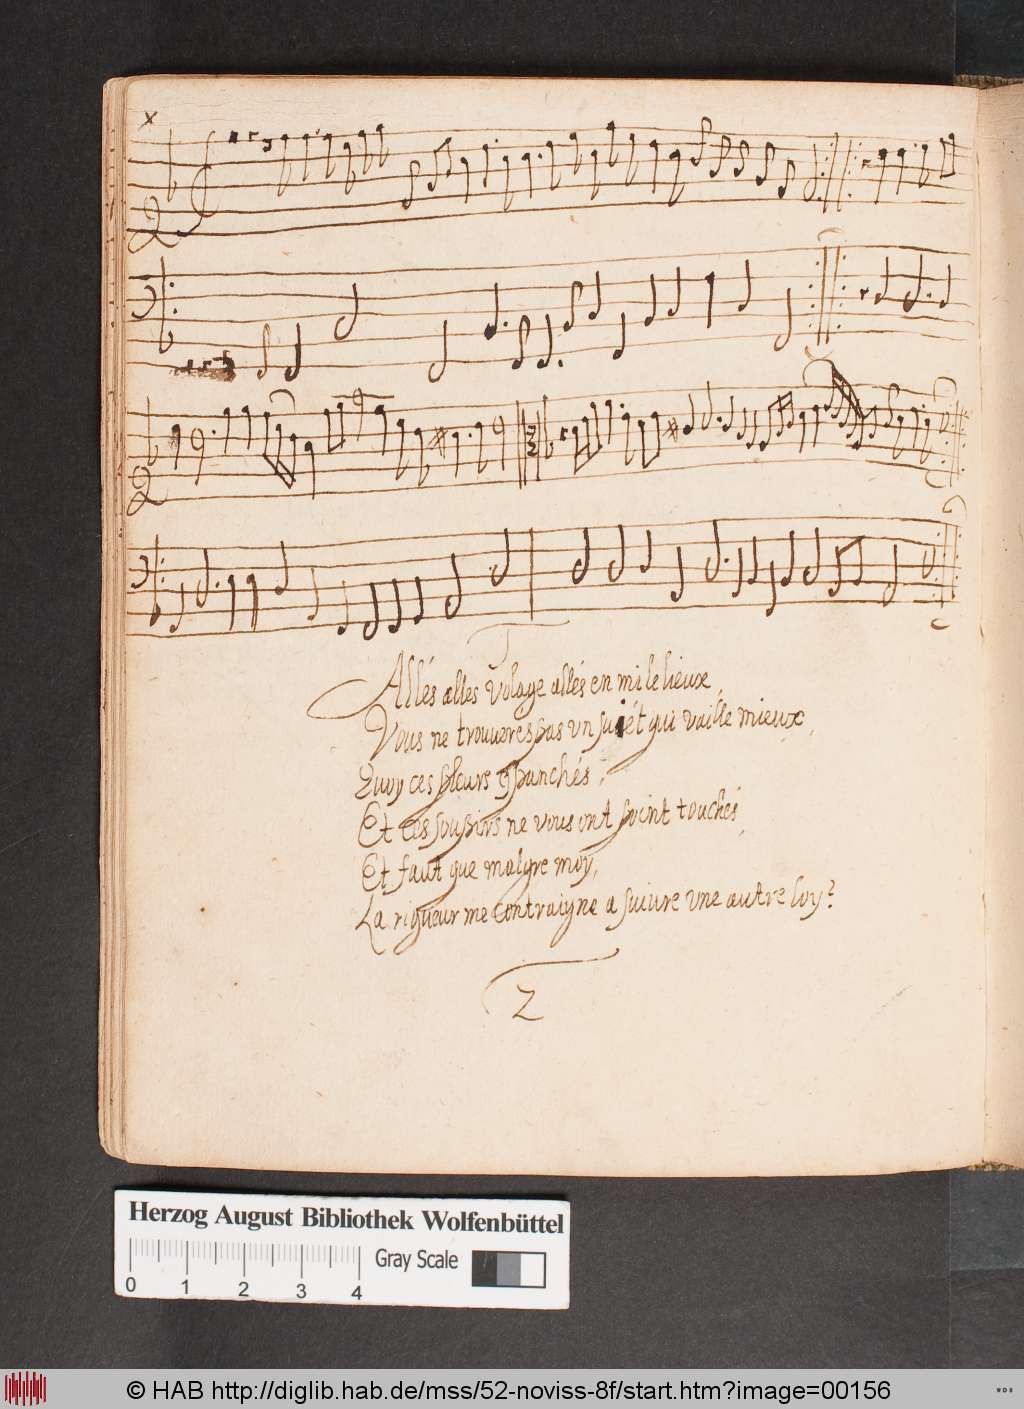 x
Allés alles Volage allés en mile lieux,
Vous ne trouveres pas un sujét qui vaille mieux,
Quoy ces pleurs espanchés,
Et ces soupirs ne vous ont point touchés
Et faut que malgre moy,
La rigueur me contraigne a suivre une autre loy?
2
Herzog August Bibliothek Wolfenbüttel
Gray Scale
0 1 2 3 4
© HAB http://diglib.hab.de/mss/52-noviss-8f/start.htm?image=00156